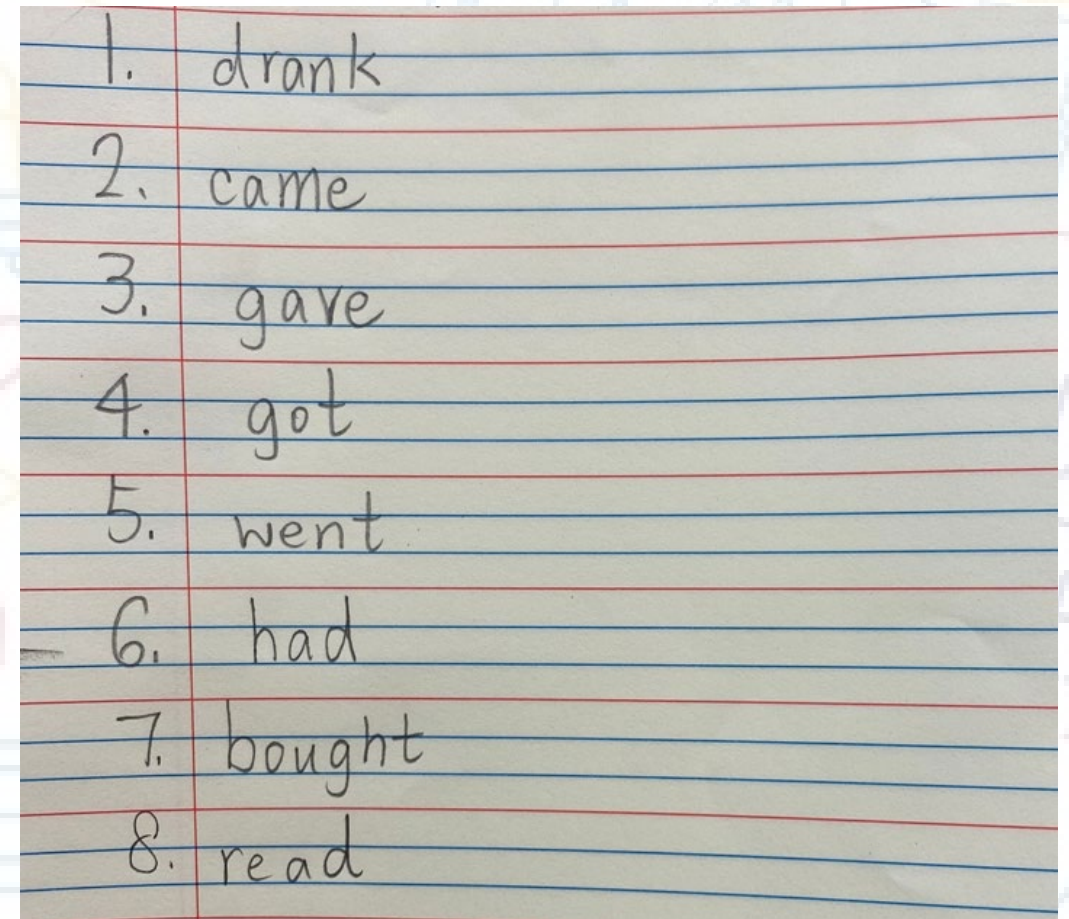 1. drank
2. came
3. gave
4. got
5. went
6. had
7. bought
8. read